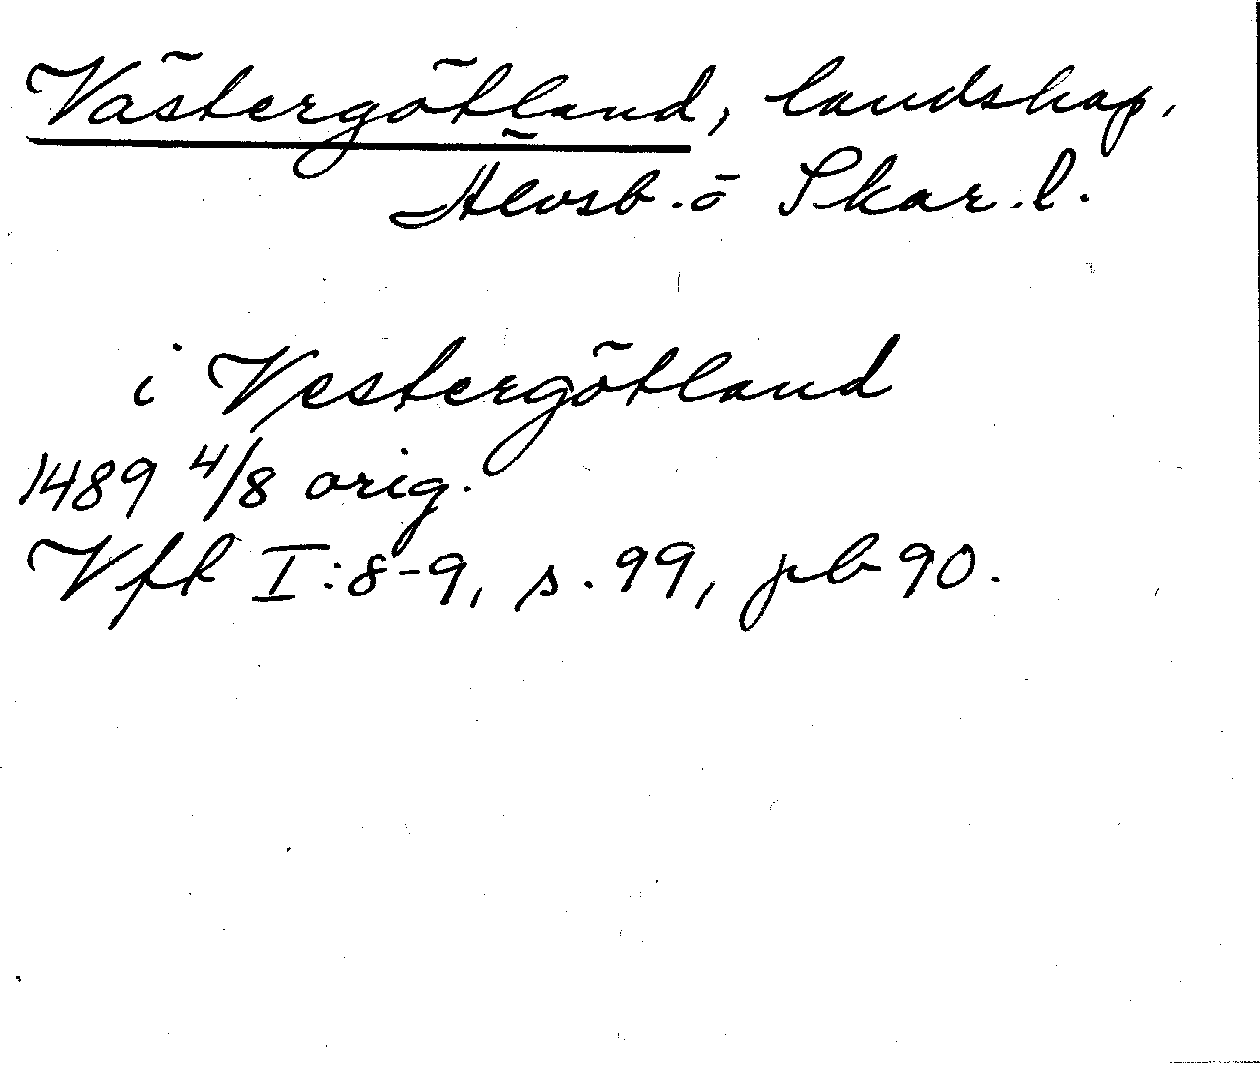 Västergötland, landskap.
Älvsb. ö Skar. l.
i Vestergötland
1489 4/8 orig.
Vfk I:8-9, s. 99, pb 90.